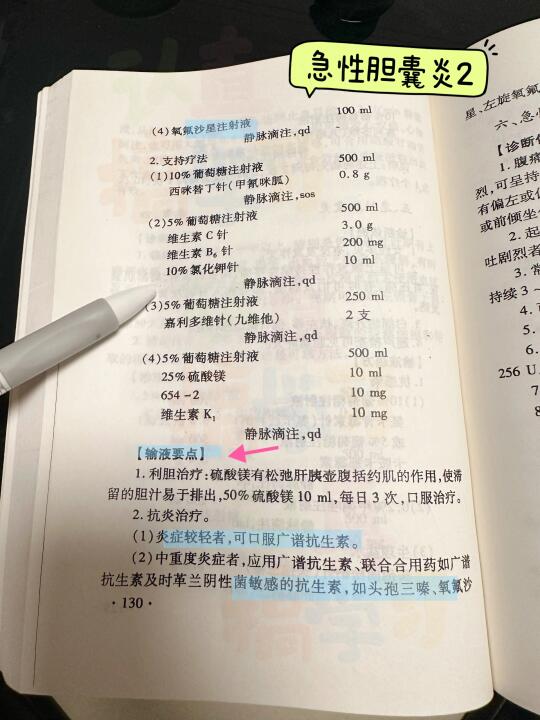 急性胆囊炎2
100 ml
(4)氧氟沙星注射液
静脉滴注,qd
2.支持疗法
(1)10%葡萄糖注射液 500 ml
西咪替丁针(甲氰咪胍) 0.8 g
静脉滴注,sos
(2)5%葡萄糖注射液 500 ml
维生素C针 3.0 g
维生素B₆针 200 mg
10%氯化钾针 10 ml
静脉滴注,qd
(3)5%葡萄糖注射液 250 ml
嘉利多维针(九维他) 2支
静脉滴注,qd
(4)5%葡萄糖注射液 500 ml
25%硫酸镁 10 ml
654-2 10 mg
维生素K₁ 10 mg
静脉滴注,qd
【输液要点】
1.利胆治疗:硫酸镁有松弛肝胰壶腹括约肌的作用,使滞
留的胆汁易于排出,50%硫酸镁10 ml,每日3次,口服治疗。
2.抗炎治疗。
(1)炎症较轻者,可口服广谱抗生素。
(2)中重度炎症者,应用广谱抗生素、联合合用药如广谱
抗生素及时革兰阴性菌敏感的抗生素,如头孢三嗪、氧氟沙
·130·
星、左旋氧氟
六、急
【诊断
1.腹痛
烈,可呈持
有偏左或
或前倾坐
2.起
吐剧烈者
3.常
持续3~
4.
5.
6.
256 U
7
8